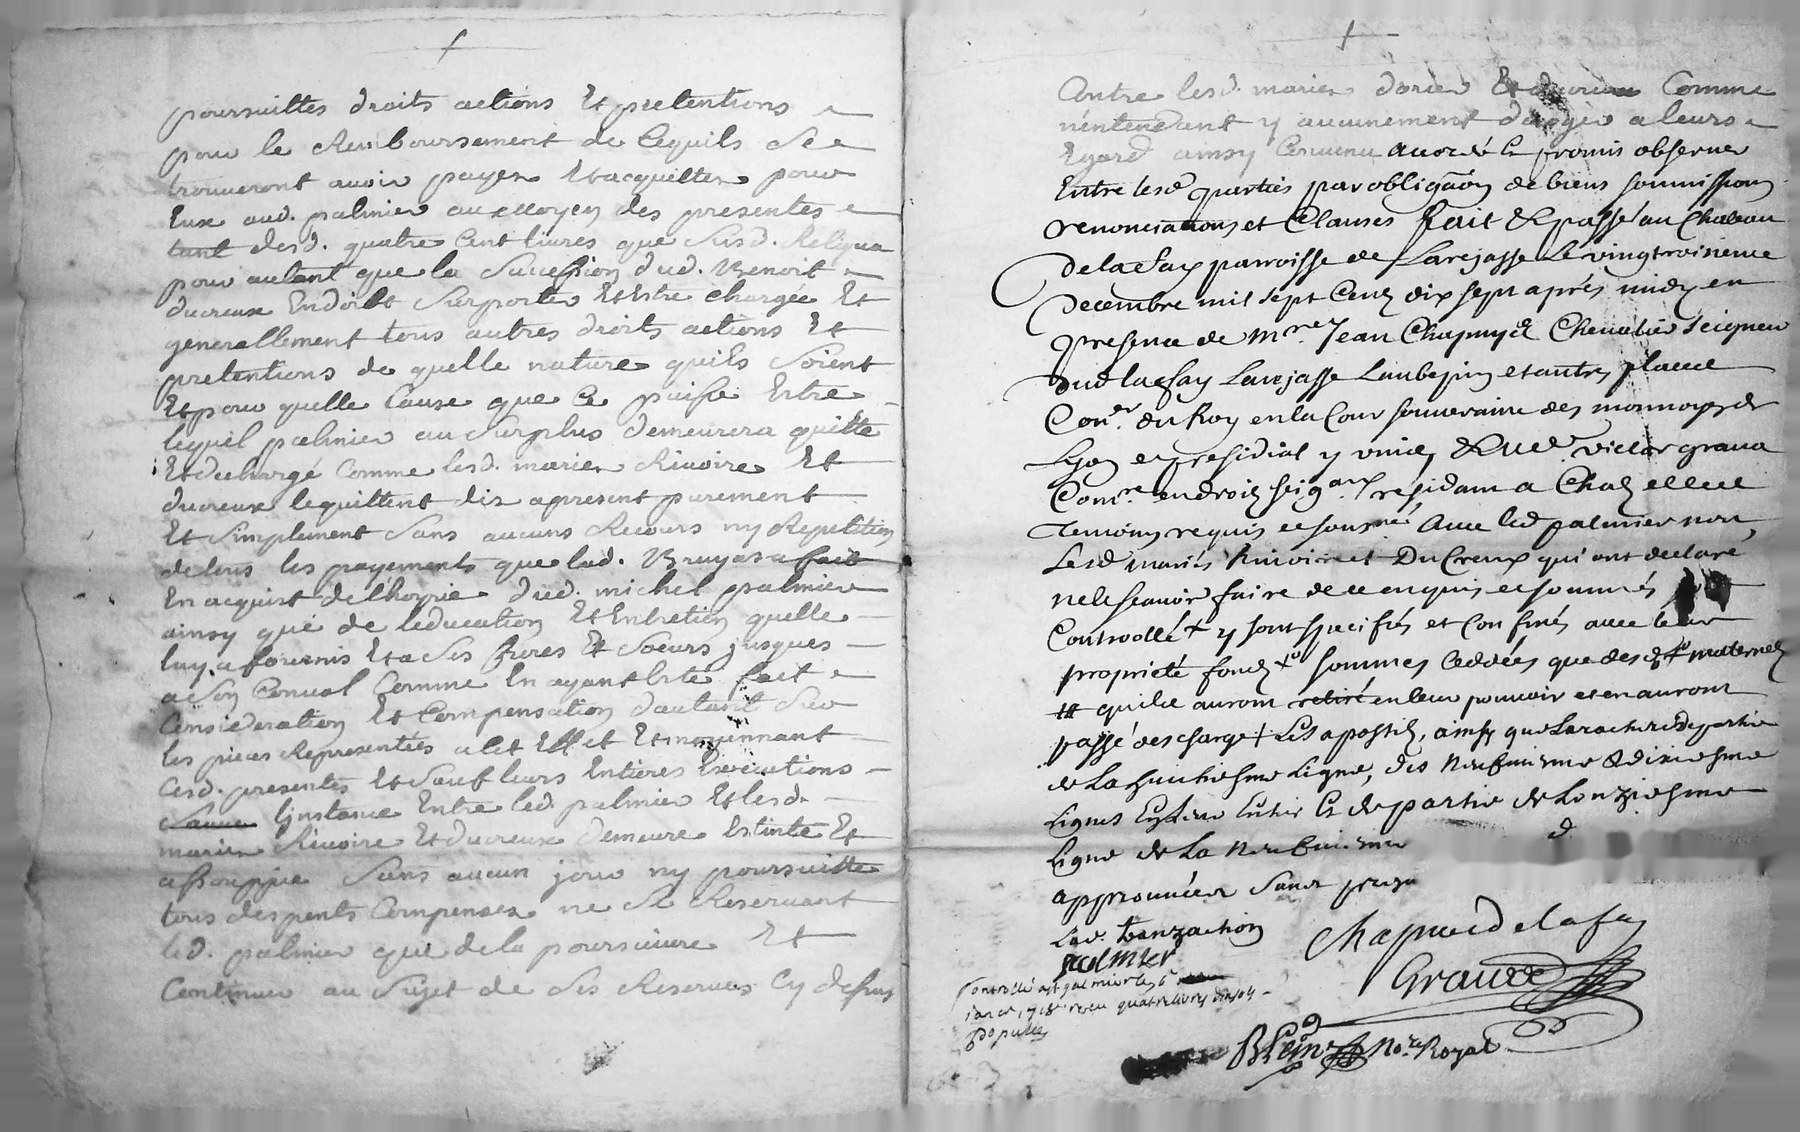 poursuittes droits actions Et pretentions
pour le Remboursement de Cequils Se
trouueront auoir payer Et acquitter pour
Eux aud. palmier au moyen des presentes
tant desd. quatre Cent liures que Susd. Reliqua
pour autant que la Succession dud. Benoit
ducreux En doibt Suporter Et Estre chargée Et
generallement tous autres droits actions Et
pretentions de quelle nature quils Soient
Et pour quelle Cause que Ce puisse Estre
lequel palmier au Surplus demeurera quitte
Et dechargé Comme lesd. mariez Riuoire Et
ducreux lequittent dez apresent purement
Et Simplement Sans aucuns Recours ny Repetition
de tous les payements que lad. Bruyas a fait
En acquist de l'hoyrie dud. michel palmier
ainsy que de leducation Et Entretien quelle
luy a fournis Et a Ses freres Et Soeurs jusques
a Son Conuol Comme En ayant Esté fait
Consideration Et Compensation dautant Sur
les pieces Representées a Cet Effet Et moyennant
Cesd. presentes Et Sauf leurs Entieres Executions
linstance Entre led. palmier Et lesd.
mariez Riuoire Et ducreux demeure Esteinte Et
assoupie Sans aucun jour ny poursuitte
tous despents Compensez ne Se Reseruant
led. palmier que de la poursuiure Et
Continuer au Sujet de Ses Reserues Cy dessus
Contre lesd. mariez Et Comme
n'entendant y aucunement a leurs
Egard ainsy Conuenu acordé Et promis obseruer
Entre lesd parties par obligaon de biens soumissions
renonciations et Clauses fait & passé au Chateau
de la fay parroisse de Larejasse Le vingtroisieme
decembre mil sept Cent dix sept après midy en
presence de Mre. Jean Chapuys Cheualier seigneur
dud lafay Larejasse Laubepin et autres places
Coner. du Roy en la Cour souueraine des monnoyes de
Lyon et presidial y vnie, & de Me. victor graua
resident a Chazelles
Temoins requis et sousné. Auec led palmier non
Lesd mariés Riuoire et Ducreux qui ont declaré
ne le sçauoir faire de ce enquis et sommés
Controllé + y sont specifiés et Confinés auec leur
propriété fond + sommes Ceddées que desd maternels
+ quil auront retiré en leur pouuoir et en auront
passé descharge + Les apostil, ainsy que la rature de partie
de La huictiesme Ligne, des neufuiesme & dixiesme
Lignes Et de partie de Lonziesme
Ligne de La neufuiesme
approuuées Sans
Lad. tranzaction
palmier
Chapuis de la fay
Graua
No.re Royal